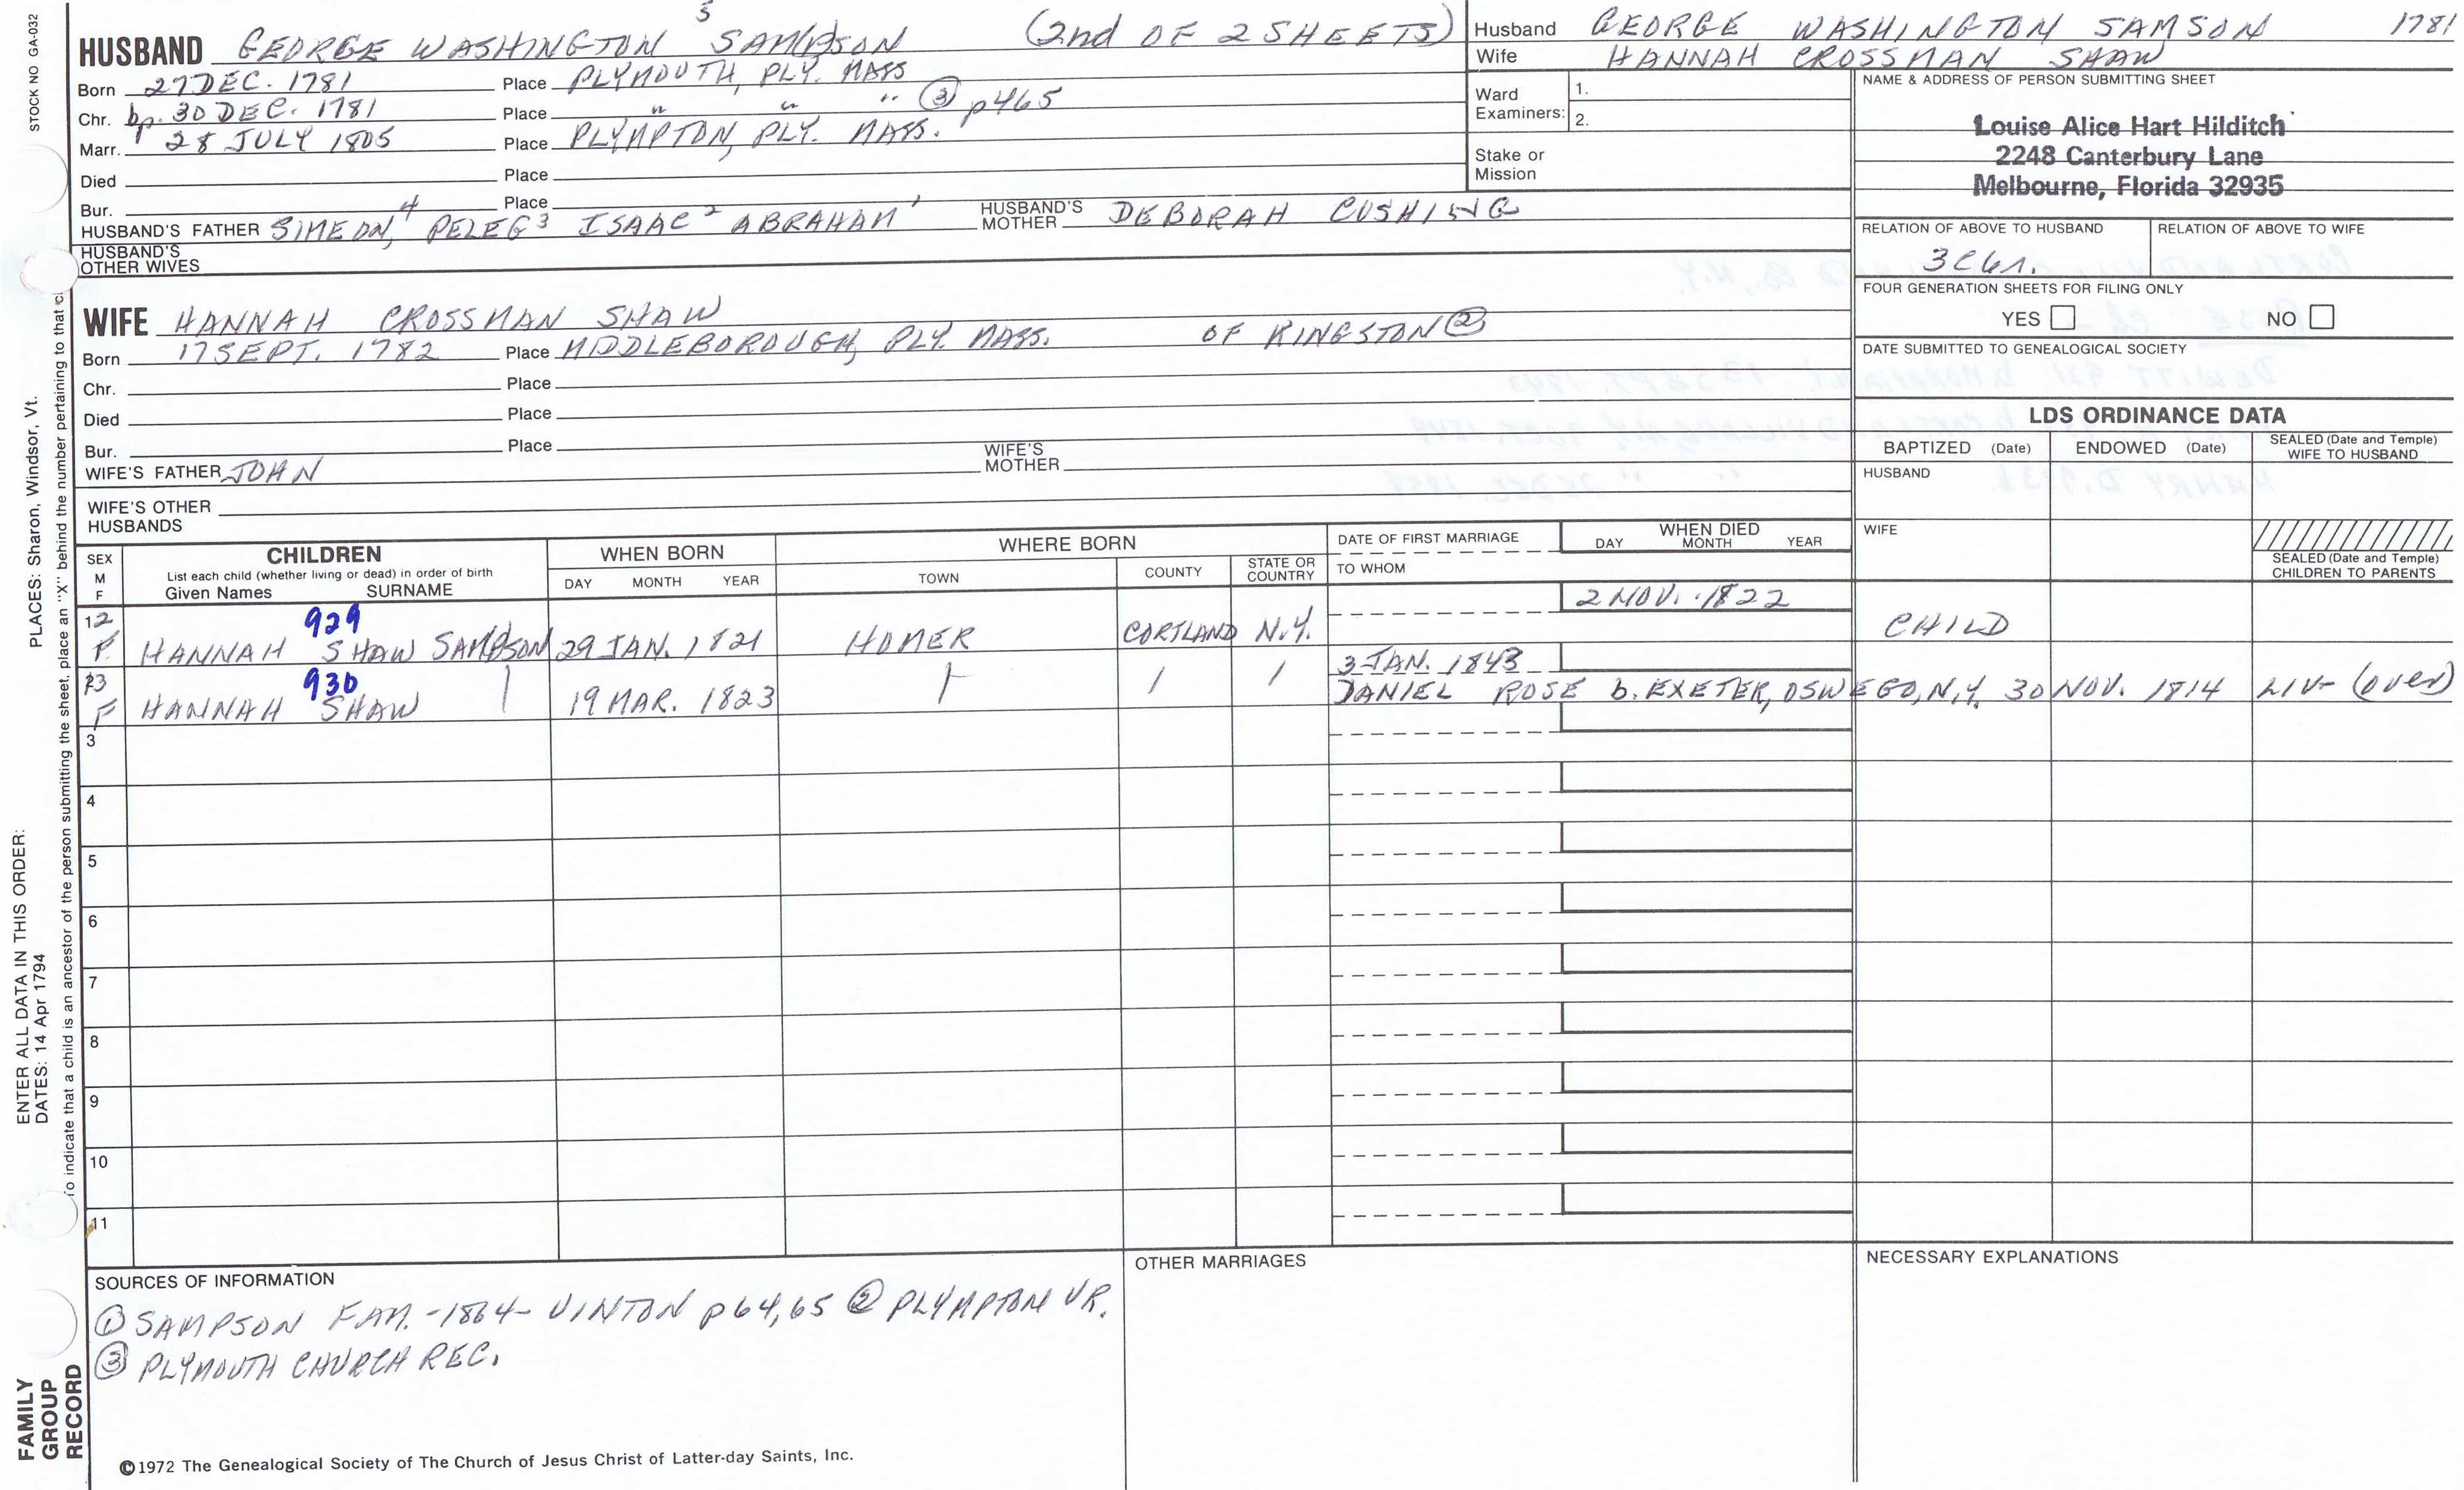 STOCK NO GA-032
PLACES: Sharon, Windsor, Vt.
ENTER ALL DATA IN THIS ORDER:
DATES: 14 Apr 1794
To indicate that a child is an ancestor of the person submitting the sheet, place an "X" behind the number pertaining to that
FAMILY
GROUP
RECORD
HUSBAND GEORGE WASHINGTON 5 SAMPSON (2nd OF 2 SHEETS)
Born 27 DEC. 1781 Place PLYMOUTH, PLY. MASS
Chr. bp. 30 DEC. 1781 Place " " " ③ p465
Marr. 28 JULY 1805 Place PLYMPTON, PLY. MASS.
Died Place
Bur. Place
HUSBAND'S FATHER SIMEON,4 PELEG3 ISAAC2 ABRAHAM1 HUSBAND'S MOTHER DEBORAH CUSHING
HUSBAND'S
OTHER WIVES
WIFE HANNAH CROSSMAN SHAW
Born 17 SEPT. 1782 Place MIDDLEBOROUGH, PLY. MASS. OF KINGSTON ②
Chr. Place
Died Place
Bur. Place
WIFE'S FATHER JOHN WIFE'S MOTHER
WIFE'S OTHER
HUSBANDS
Husband GEORGE WASHINGTON SAMSON 1781
Wife HANNAH CROSSMAN SHAW
Ward
Examiners:
1.
2.
Stake or
Mission
NAME & ADDRESS OF PERSON SUBMITTING SHEET
Louise Alice Hart Hilditch
2248 Canterbury Lane
Melbourne, Florida 32935
RELATION OF ABOVE TO HUSBAND RELATION OF ABOVE TO WIFE
FOUR GENERATION SHEETS FOR FILING ONLY
YES NO
DATE SUBMITTED TO GENEALOGICAL SOCIETY
LDS ORDINANCE DATA
BAPTIZED (Date) ENDOWED (Date) SEALED (Date and Temple)
WIFE TO HUSBAND
HUSBAND
WIFE
SEALED (Date and Temple)
CHILDREN TO PARENTS
SEX
M
F
CHILDREN
List each child (whether living or dead) in order of birth
Given Names SURNAME
WHEN BORN
DAY MONTH YEAR
WHERE BORN
TOWN COUNTY STATE OR
COUNTRY
DATE OF FIRST MARRIAGE
TO WHOM
WHEN DIED
DAY MONTH YEAR
12 929 2 NOV. 1822
F. HANNAH SHAW SAMPSON 29 JAN. 1821 HOMER CORTLAND N.Y. CHILD
13 930 3 JAN. 1843
F HANNAH SHAW 19 MAR. 1823 DANIEL ROSE b. EXETER, OSWEGO, N.Y. 30 NOV. 1814 LIV- (over)
3
4
5
6
7
8
9
10
11
SOURCES OF INFORMATION
① SAMPSON FAM. -1864- VINTON p64,65 ② PLYMPTON VR.
③ PLYMOUTH CHURCH REC.
OTHER MARRIAGES
NECESSARY EXPLANATIONS
©1972 The Genealogical Society of The Church of Jesus Christ of Latter-day Saints, Inc.